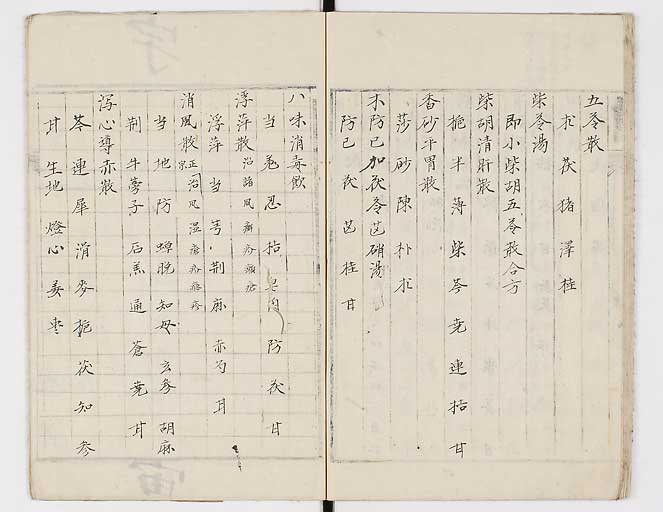 五苓散
朮 茯 猪 澤 桂
柴苓湯
即小柴胡五苓散合方
柴胡清肝散
梔 半 薄 柴 芩 芎 連 桔 甘
香砂平胃散
莎 砂 陳 朴 朮
木防已加茯苓芒硝湯
防已 茯 芒 桂 甘
八味消毒飲
当 芎 忍 桔 防 茯 甘
浮萍散 治諸風癬疥癩瘡
浮萍 当 芎 荆 麻 赤勺 甘
消風散 正宗 治风湿
当 地 防 蝉脱 知母 玄参 胡麻
荆 牛蒡子 石羔 通 蒼 芎 甘
瀉心導赤散
芩 連 犀 滑 麥 梔 茯 知 参
甘 生地 燈心 姜 枣